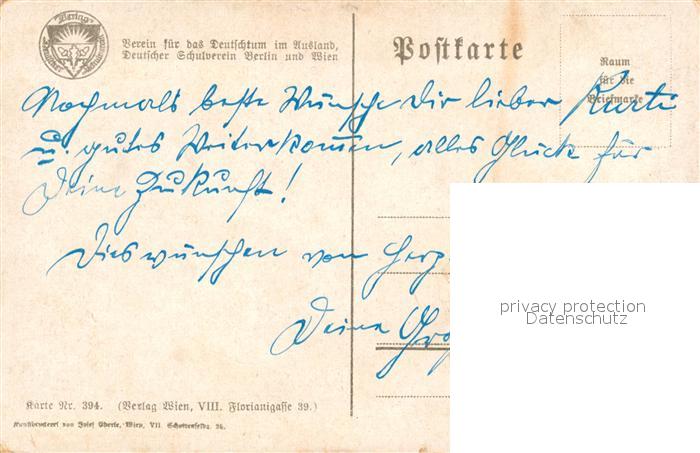 Verein für das Deutschtum im Ausland,
Deutscher Schulverein Berlin und Wien
Postkarte
Raum
für die
Briefmarke
Nochmals beste Wünsche Dir lieber Kurti
u. gutes Weiterkommen, alles Glück für
Deine Zukunft!
Dies wünschen von Herz
Deine
privacy protection
Datenschutz
Karte Nr. 394. (Verlag Wien, VIII. Florianigasse 39.)
von Josef Eberle, Wien, VII. Schottenfeldg.